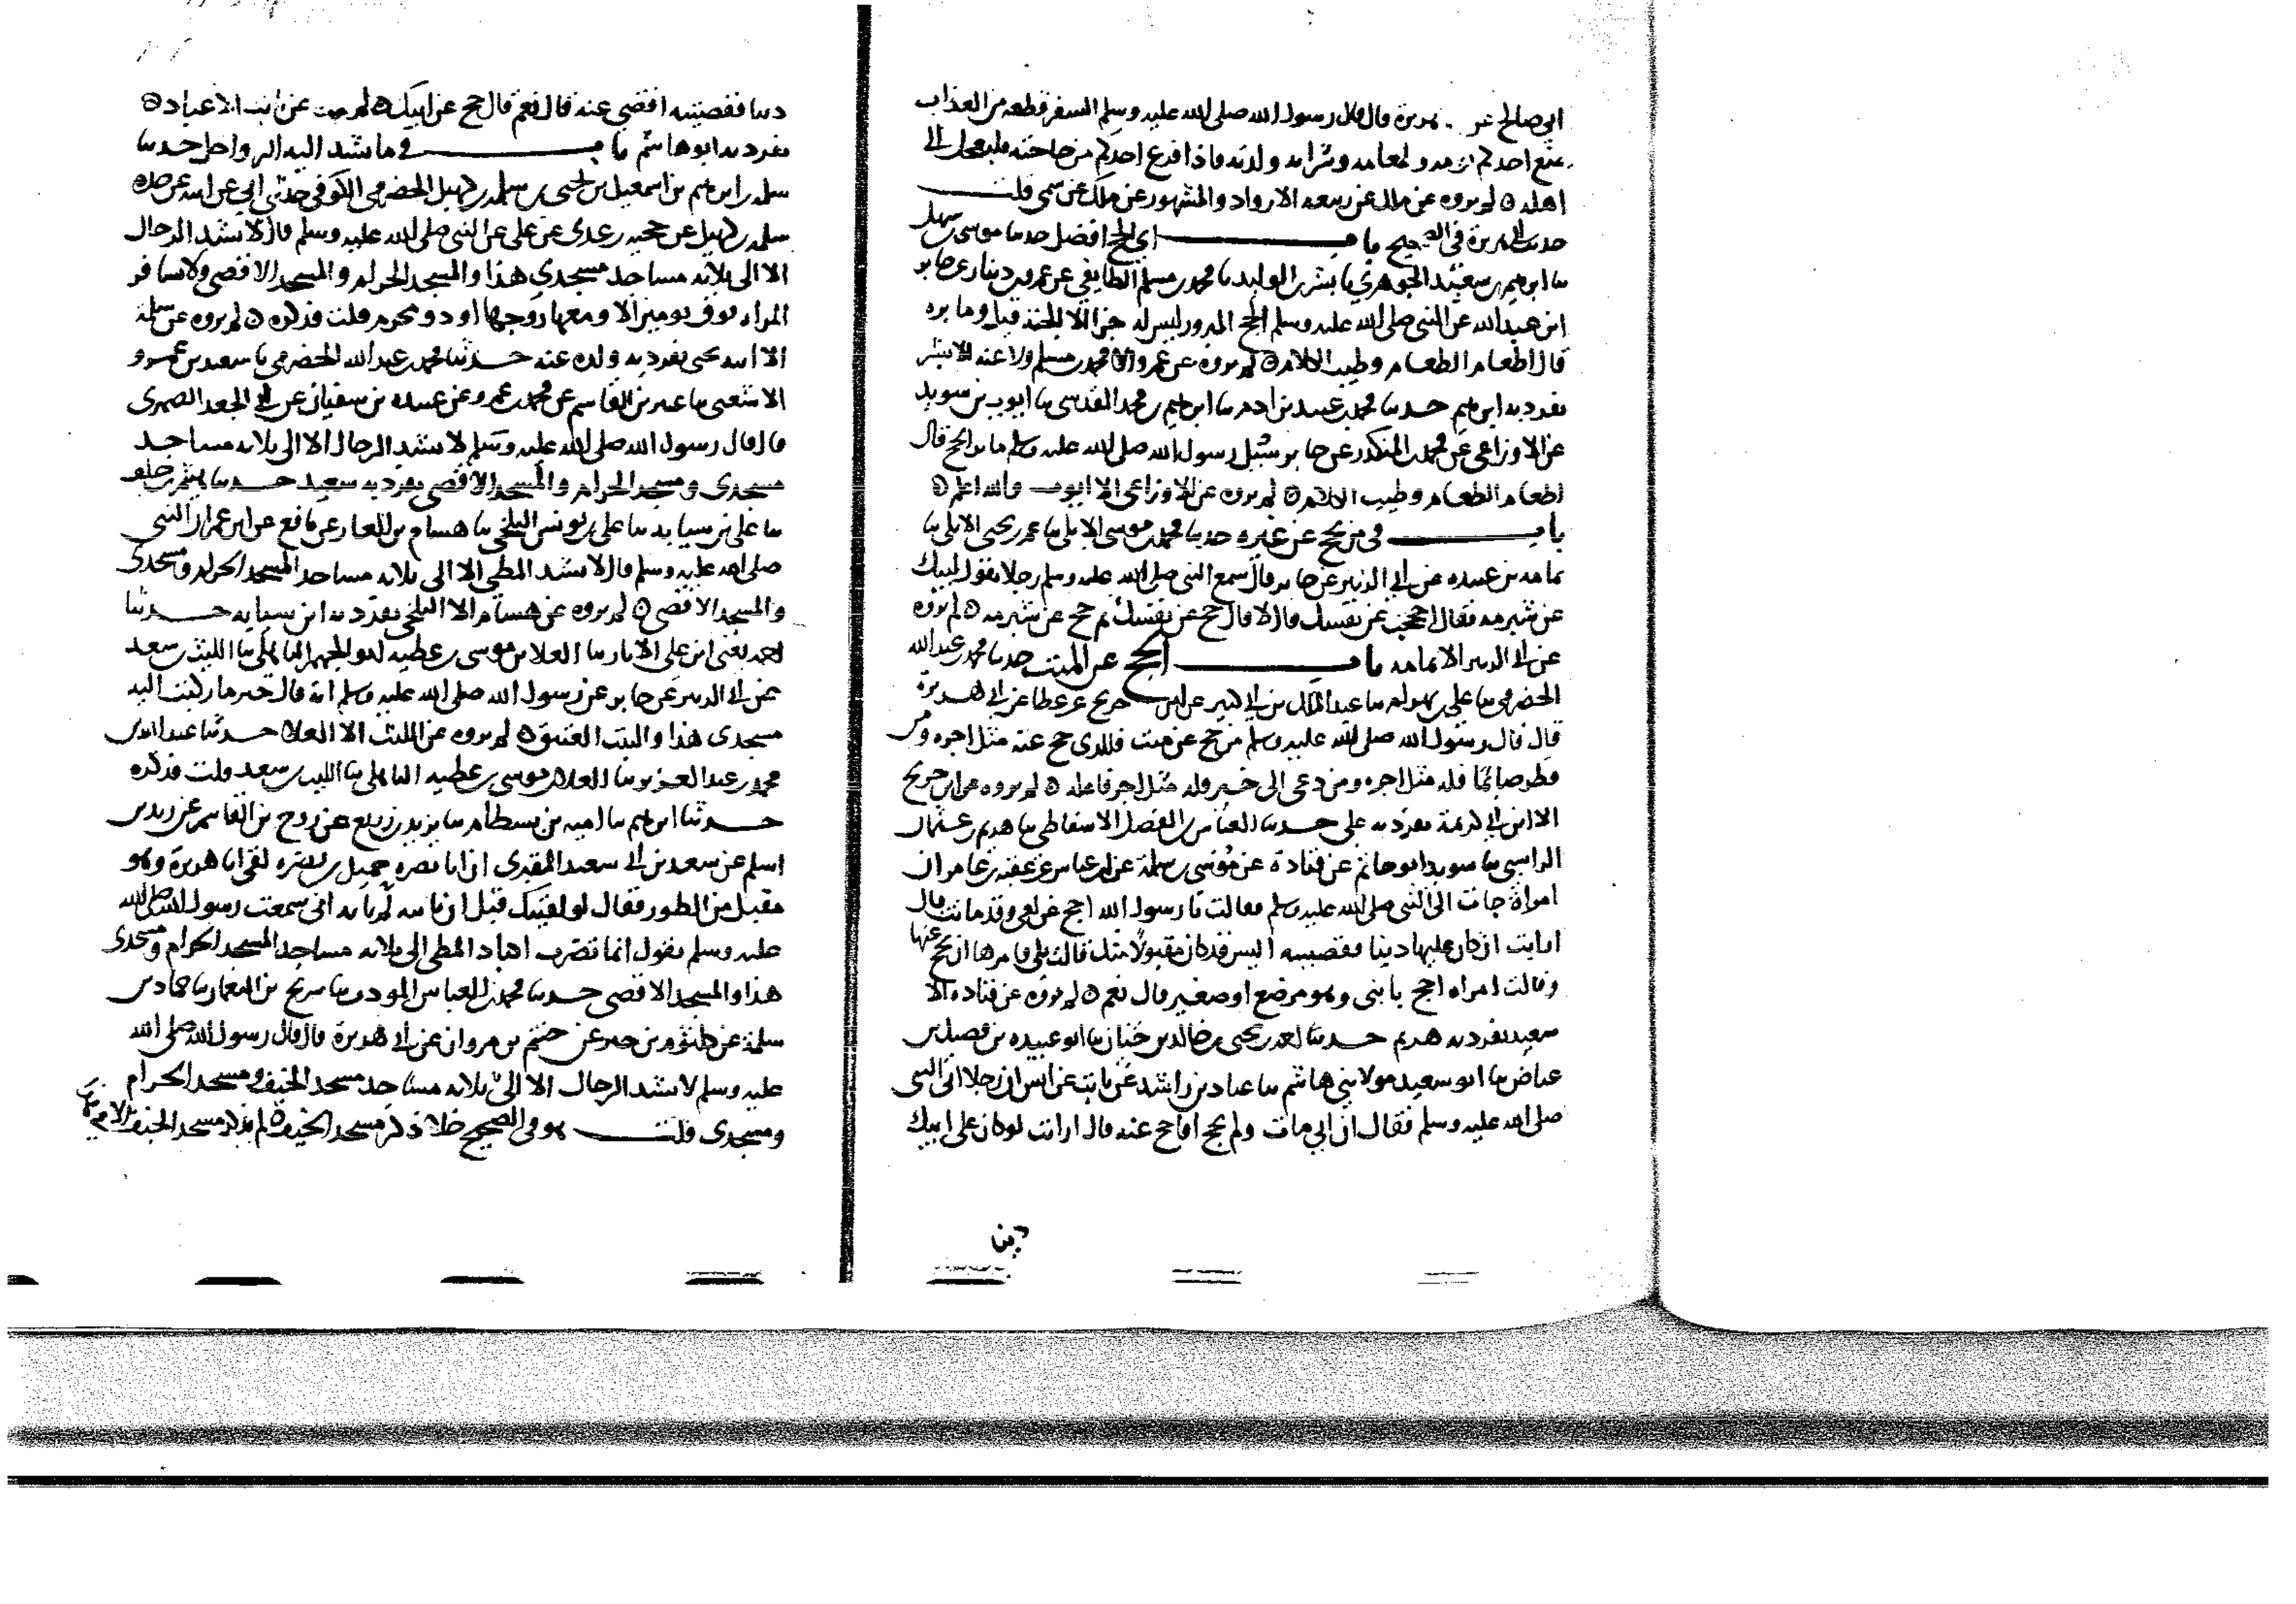 ابي صالح عن هريرة قال قال رسول الله صلى الله عليه وسلم السفر قطعه من العذاب
يمنع احدكم نومه وطعامه وشرابه ولدته فاذا فرغ احدكم من حاجته فليعجل الى
اهله ٥ لم يروه عن ملك عن ربيعه الا رواد والمشهور عن ملك عن سمى قلت
حديث ابى هريرة في الصحيح باب اي الحج افضل حدثنا موسى بن سهل
ثنا ابرهيم بن سعيد الجوهري ثنا بشر بن الوليد ثنا محمد بن مسلم الطايفي عن عمرو بن دينار عن جابر
ابن عبد الله عن النبي صلى الله عليه وسلم الحج المبرور ليس له جزا الا الجنة قيل وما بره
قال اطعام الطعام وطيب الكلام ٥ لم يروه عن عمرو الا محمد بن مسلم ولا عنه الا بشر
تفرد به ابرهيم حدثنا محمد بن عبيد بن ادم ثنا ابرهيم بن محمد المقدسي ثنا ايوب بن سويد
عن الاوزاعي عن محمد بن المنكدر عن جابر سئل رسول الله صلى الله عليه وسلم ما بر الحج قال
اطعام الطعام وطيب الكلام ٥ لم يروه عن الاوزاعي الا ايوب والله اعلم ٥
باب في من يحج عن غيره حدثنا محمد بن موسى الابلي ثنا عمر بن يحيى الابلي ثنا
ثمامه بن عبيده عن ابي الزبير عن جابر قال سمع النبي صلى الله عليه وسلم رجلا يقول لبيك
عن شبرمه فقال احججت عن نفسك قال لا قال حج عن نفسك ثم حج عن شبرمه ٥ لم يروه
عن ابي الزبير الا ثمامه باب الحج عن الميت حدثنا محمد بن عبد الله
الحضرمي ثنا على بن بهرام ثنا عبد الملك بن ابي كريمه عن ابن جريج عن عطا عن ابي هريرة
قال قال رسول الله صلى الله عليه وسلم من حج عن ميت فللذي حج عنه مثل اجره ومن
فطر صائما فله مثل اجره ومن دعى الى خير فله مثل اجر فاعله ٥ لم يروه عن ابن جريج
الا ابن ابي كريمة تفرد به على حدثنا العباس بن الفضل الاسفاطي ثنا هريم بن عثمان
الراسبي ثنا سويد ابو حاتم عن قتادة عن موسى بن سلمة عن ابن عباس عن عقبه بن عامر ان
امراة جات الى النبي صلى الله عليه وسلم فقالت يا رسول الله احج عن امي وقد ماتت قال
ارايت ان كان عليها دينا فقضيتيه اليس قد كان مقبولا منك قالت بلى فامرها ان تحج عنها
وقالت امراه احج بابني وهو مرضع او صغير قال نعم ٥ لم يروه عن قتاده الا
سعيد تفرد به هريم حدثنا احمد بن يحيى بن خالد بن حيان ثنا ابو عبيده بن فضيل بن
عياض ثنا ابو سعيد مولا بني هاشم ثنا عباد بن راشد عن ثابت عن انس ان رجلا اتى النبي
صلى الله عليه وسلم فقال ان ابي مات ولم يحج افاحج عنه قال ارايت لو كان على ابيك
دينا
دينا فقضيتيه اقضي عنه قال نعم قال حج عن ابيك ٥ لم يروه عن ثابت الا عباد ٥
تفرد به ابو هاشم باب في ما تشد اليه الرواحل حدثنا
سلمه بن ابرهيم بن اسمعيل بن يحيى بن سلمه بن كهيل الحضرمي الكوفي حدثني ابي عن ابيه عن جده
سلمه بن كهيل عن حجيه بن عدى عن على عن النبي صلى الله عليه وسلم قال لا تشد الرحال
الا الى ثلاثه مساجد مسجدي هذا والمسجد الحرام والمسجد الاقصى ولا تسافر
المراه فوق يومين الا ومعها زوجها او ذو محرم قلت فذكره ٥ لم يروه عن سلمة
الا ابنه يحيى تفرد به ولده عنه حدثنا محمد بن عبد الله الحضرمي ثنا سعيد بن عمرو
الاشعثى ثنا عبثر بن القاسم عن محمد بن عمرو عن عبيده بن سفيان عن ابي الجعد الضمرى
قال قال رسول الله صلى الله عليه وسلم لا تشد الرحال الا الى ثلاثه مساجد
مسجدى ومسجد الحرام والمسجد الاقصى تفرد به سعيد حدثنا هيثم بن خلف
ثنا على بن سيابه ثنا على بن يونس البلخي ثنا هشام بن الغاز عن نافع عن ابن عمر ان النبي
صلى الله عليه وسلم قال لا تشد المطي الا الى ثلاثه مساجد المسجد الحرام ومسجدى
والمسجد الاقصى ٥ لم يروه عن هشام الا البلخي تفرد به ابن سيابه حدثنا
احمد يعني ابن على الابار ثنا العلا بن موسى بن عطيه ابو الجهم الباهلى ثنا الليث بن سعد
عن ابي الزبير عن جابر عن رسول الله صلى الله عليه وسلم انه قال خير ما ركبت اليه
مسجدى هذا والبيت العتيق ٥ لم يروه عن الليث الا العلا حدثنا عبد الله بن
محمد بن عبد العزيز ثنا العلا بن موسى بن عطيه الباهلى ثنا الليث بن سعد قلت فذكره
حدثنا ابرهيم ثنا اميه بن بسطام ثنا يزيد بن زريع عن روح بن القاسم عن زيد بن
اسلم عن سعيد بن ابي سعيد المقبرى ان ابا بصره جميل بن بصره لقى ابا هريرة وهو
مقبل من الطور فقال لو لقيتك قبل ان تاتيه لم تاته اني سمعت رسول الله صلى الله
عليه وسلم يقول انما تضرب اكباد المطي الى ثلاثه مساجد المسجد الحرام ومسجدى
هذا والمسجد الاقصى حدثنا محمد بن العباس المودب ثنا سريج بن النعمان ثنا حماد بن
سلمة عن كلثوم بن جبر عن خثيم بن مروان عن ابي هريرة قال قال رسول الله صلى الله
عليه وسلم لا تشد الرحال الا الى ثلاثه مساجد مسجد الخيف ومسجد الحرام
ومسجدى قلت هو في الصحيح خلا ذكر مسجد الخيف ٥ لم يذكر مسجد الخيف الا في